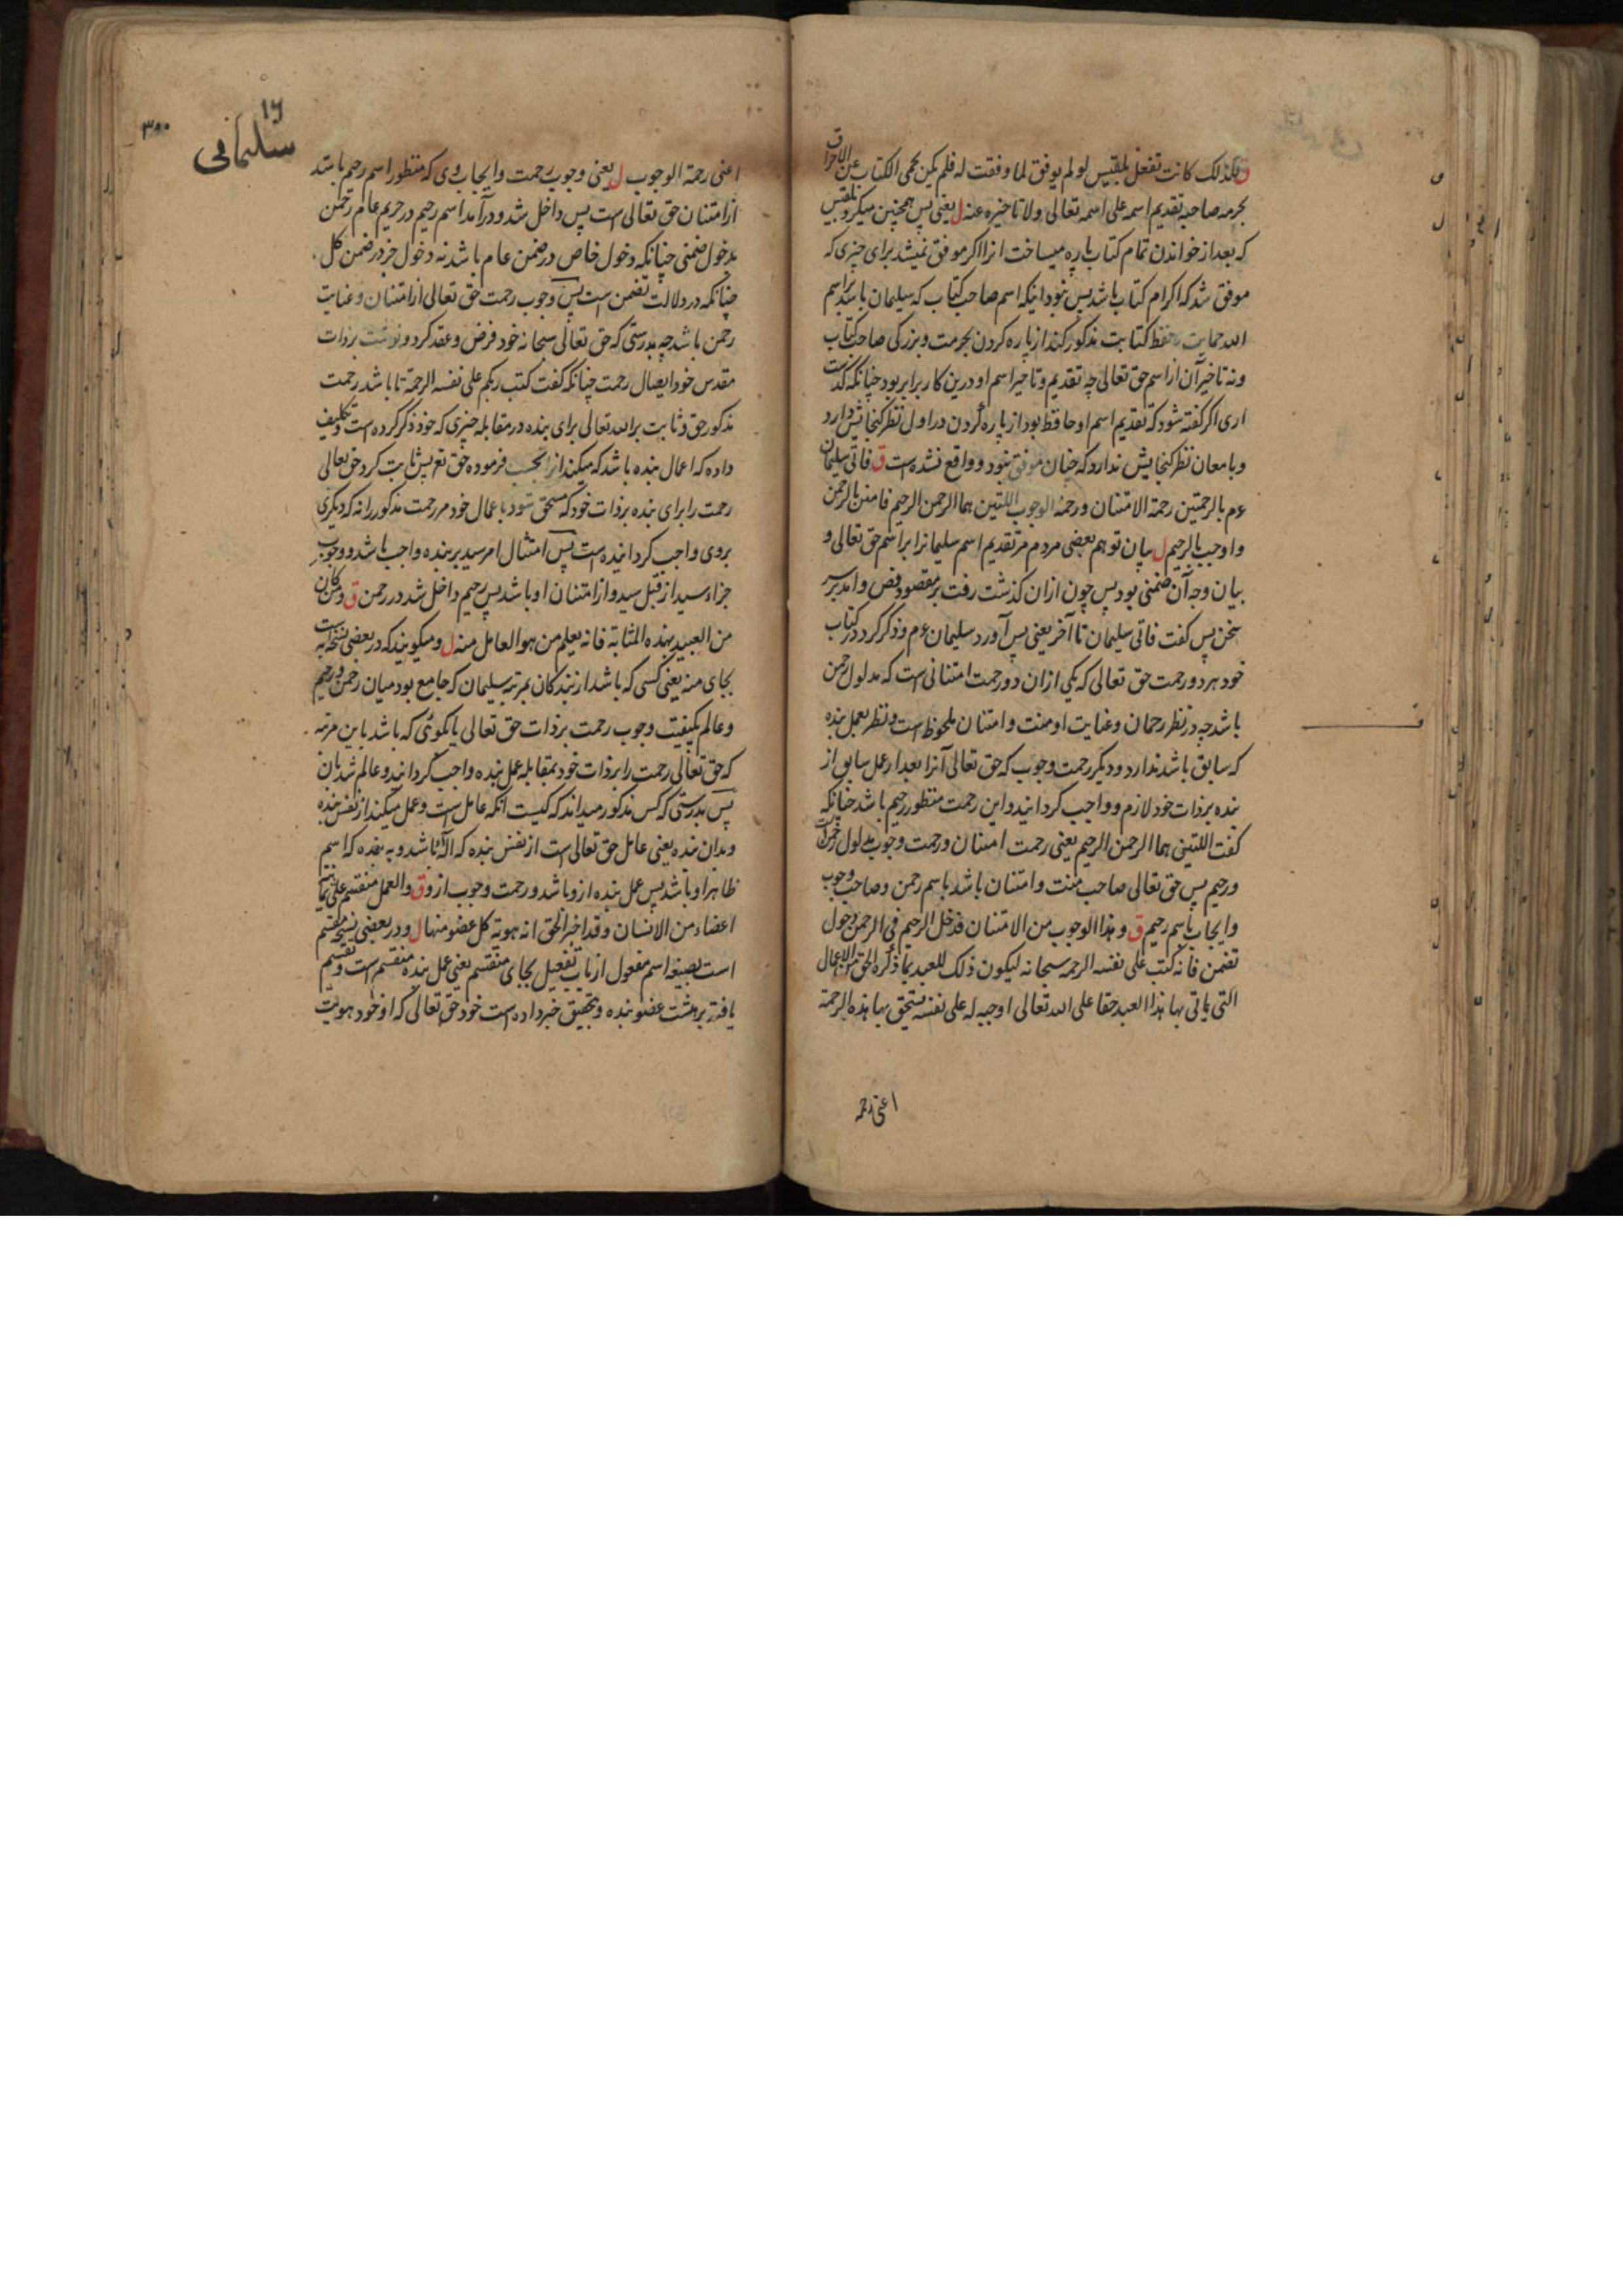 ق فکذلک کانت تفعل بلقیس لو لم یوفق لما وفقت له فلم یکن یحمی الکتاب عن الاحراق
بحرمه صاحبه تقدیم اسمه علی اسمه تعالی ولا تاخیره عنه ل یعنی پس همچنین میکرد بلقیس
که بعد از خواندن تمام کتاب پاره میساخت انرا اکر موفق نمیشد برای چیزی که
موفق شد که اکرام کتاب باشد پس نبود اینکه اسم صاحب کتاب که سلیمان باشد بر اسم
الله حمایت و حفظ کتابت مذکور کند از پاره کردن بحرمت و بزرکی صاحب کتاب
ونه تاخیر آن از اسم حق تعالی چه تقدیم و تاخیر اسم او درین کار برابر بود چنانکه کذشت
اری اکر کفته شود که تقدیم اسم او حافظ بود از پاره کردن در اول نظر کنجایش دارد
و بامعان نظر کنجایش ندارد که چنان موفق نبود و واقع نشده است ق فاتی سلیمان
ع م بالرحمتین رحمة الامتنان و رحمة الوجوب اللتین هما الرحمن الرحیم فامتن بالرحمن
و اوجب بالرحیم ل بیان توهم بعضی مردم مر تقدیم اسم سلیمانرا بر اسم حق تعالی و
بیان وجه آن ضمنی بود پس چون ازان کذشت رفت بر مقصود فص و امد بر سر
سخن پس کفت فاتی سلیمان تا آخر یعنی پس آورد سلیمان ع م و ذکر کرد در کتاب
خود هر دو رحمت حق تعالی که یکی ازان دو رحمت امتنانی است که مدلول رحمن
باشد چه در نظر رحمان و عنایت او منت و امتنان ملحوظ است و نظر بعمل بنده
که سابق باشد ندارد و دیکر رحمت وجوب که حق تعالی آنرا بعد از عمل سابق از
بنده بر ذات خود لازم و واجب کردانید و این رحمت منظور رحیم باشد چنانکه
کفت اللتین هما الرحمن الرحیم یعنی رحمت امتنان و رحمت وجوب مدلول رحمن
و رحیم پس حق تعالی صاحب منت و امتنان باشد باسم رحمن و صاحب وجوب
و ایجاب باسم رحیم ق و هذا الوجوب من الامتنان فدخل الرحیم فی الرحمن دخول
تضمن فانه کتب علی نفسه الرحمه سبحانه لیکون ذلک للعبد بما ذکره الحق من الاعمال
التی یاتی بها هذا العبد حقا علی الله تعالی اوجبه له علی نفسه یستحق بها هذه الرحمة
اعنی رحمه
۱۶
سلیمانی
۳۰۰
اعنی رحمة الوجوب ل یعنی وجوب رحمت و ایجاب وی که منظور اسم رحیم باشد
از امتنان حق تعالی است پس داخل شد و درآمد اسم رحیم در حریم عام رحمن
بدخول ضمنی چنانکه دخول خاص در ضمن عام باشد نه دخول جزو در ضمن کل
چنانکه در دلالت تضمن است پس وجوب رحمت حق تعالی از امتنان و عنایت
رحمن باشد چه بدرستی که حق تعالی سبحانه خود فرض و عقد کرد و نوشت بر ذات
مقدس خود ایصال رحمت چنانکه کفت کتب ربکم علی نفسه الرحمة تا باشد رحمت
مذکور حق و ثابت بر الله تعالی برای بنده در مقابله چیزی که خود ذکر کرده است و تکلیف
داده که اعمال بنده باشد که میکند انرا بحسب فرموده حق تع پس ثابت کرد حق تعالی
رحمت را برای بنده بر ذات خود که مستحق شود باعمال خود مر رحمت مذکور را نه که دیکری
بروی واجب کردانیده است پس امتثال امر سید بر بنده واجب باشد و وجوب
جزاء سید از قبل سید و از امتنان او باشد پس رحیم داخل شد در رحمن ق و من کان
من العبید بهذه المثابة فانه یعلم من هو العامل منه ل و میکویند که در بعضی نسخ به است
بجای منه یعنی کسی که باشد از بندکان بمرتبه سلیمان که جامع بود میان رحمن و رحیم
و عالم بکیفیت وجوب رحمت بر ذات حق تعالی یا بکوئی که باشد باین مرتبه
که حق تعالی رحمت را بر ذات خود بمقابله عمل بنده واجب کردانید و عالم شد بآن
پس بدرستی که کس مذکور میداند که کیست آنکه عامل است و عمل میکند از نفس بنده
و بدان بنده یعنی عامل حق تعالی است از نفس بنده که آله باشد و به بنده که اسم
ظاهر او باشد پس عمل بنده ازو باشد و رحمت وجوب ازو ق والعمل منقسم علی ثمانیة
اعضاء من الانسان و قد اخبر الحق انه هویة کل عضو منها ل و در بعضی نسخ مقسم
است بصیغه اسم مفعول از باب تفعیل بجای منقسم یعنی عمل بنده منقسم است و تقسیم
یافته بر هشت عضو بنده و بتحقیق خبر داده است خود حق تعالی که او خود هویت